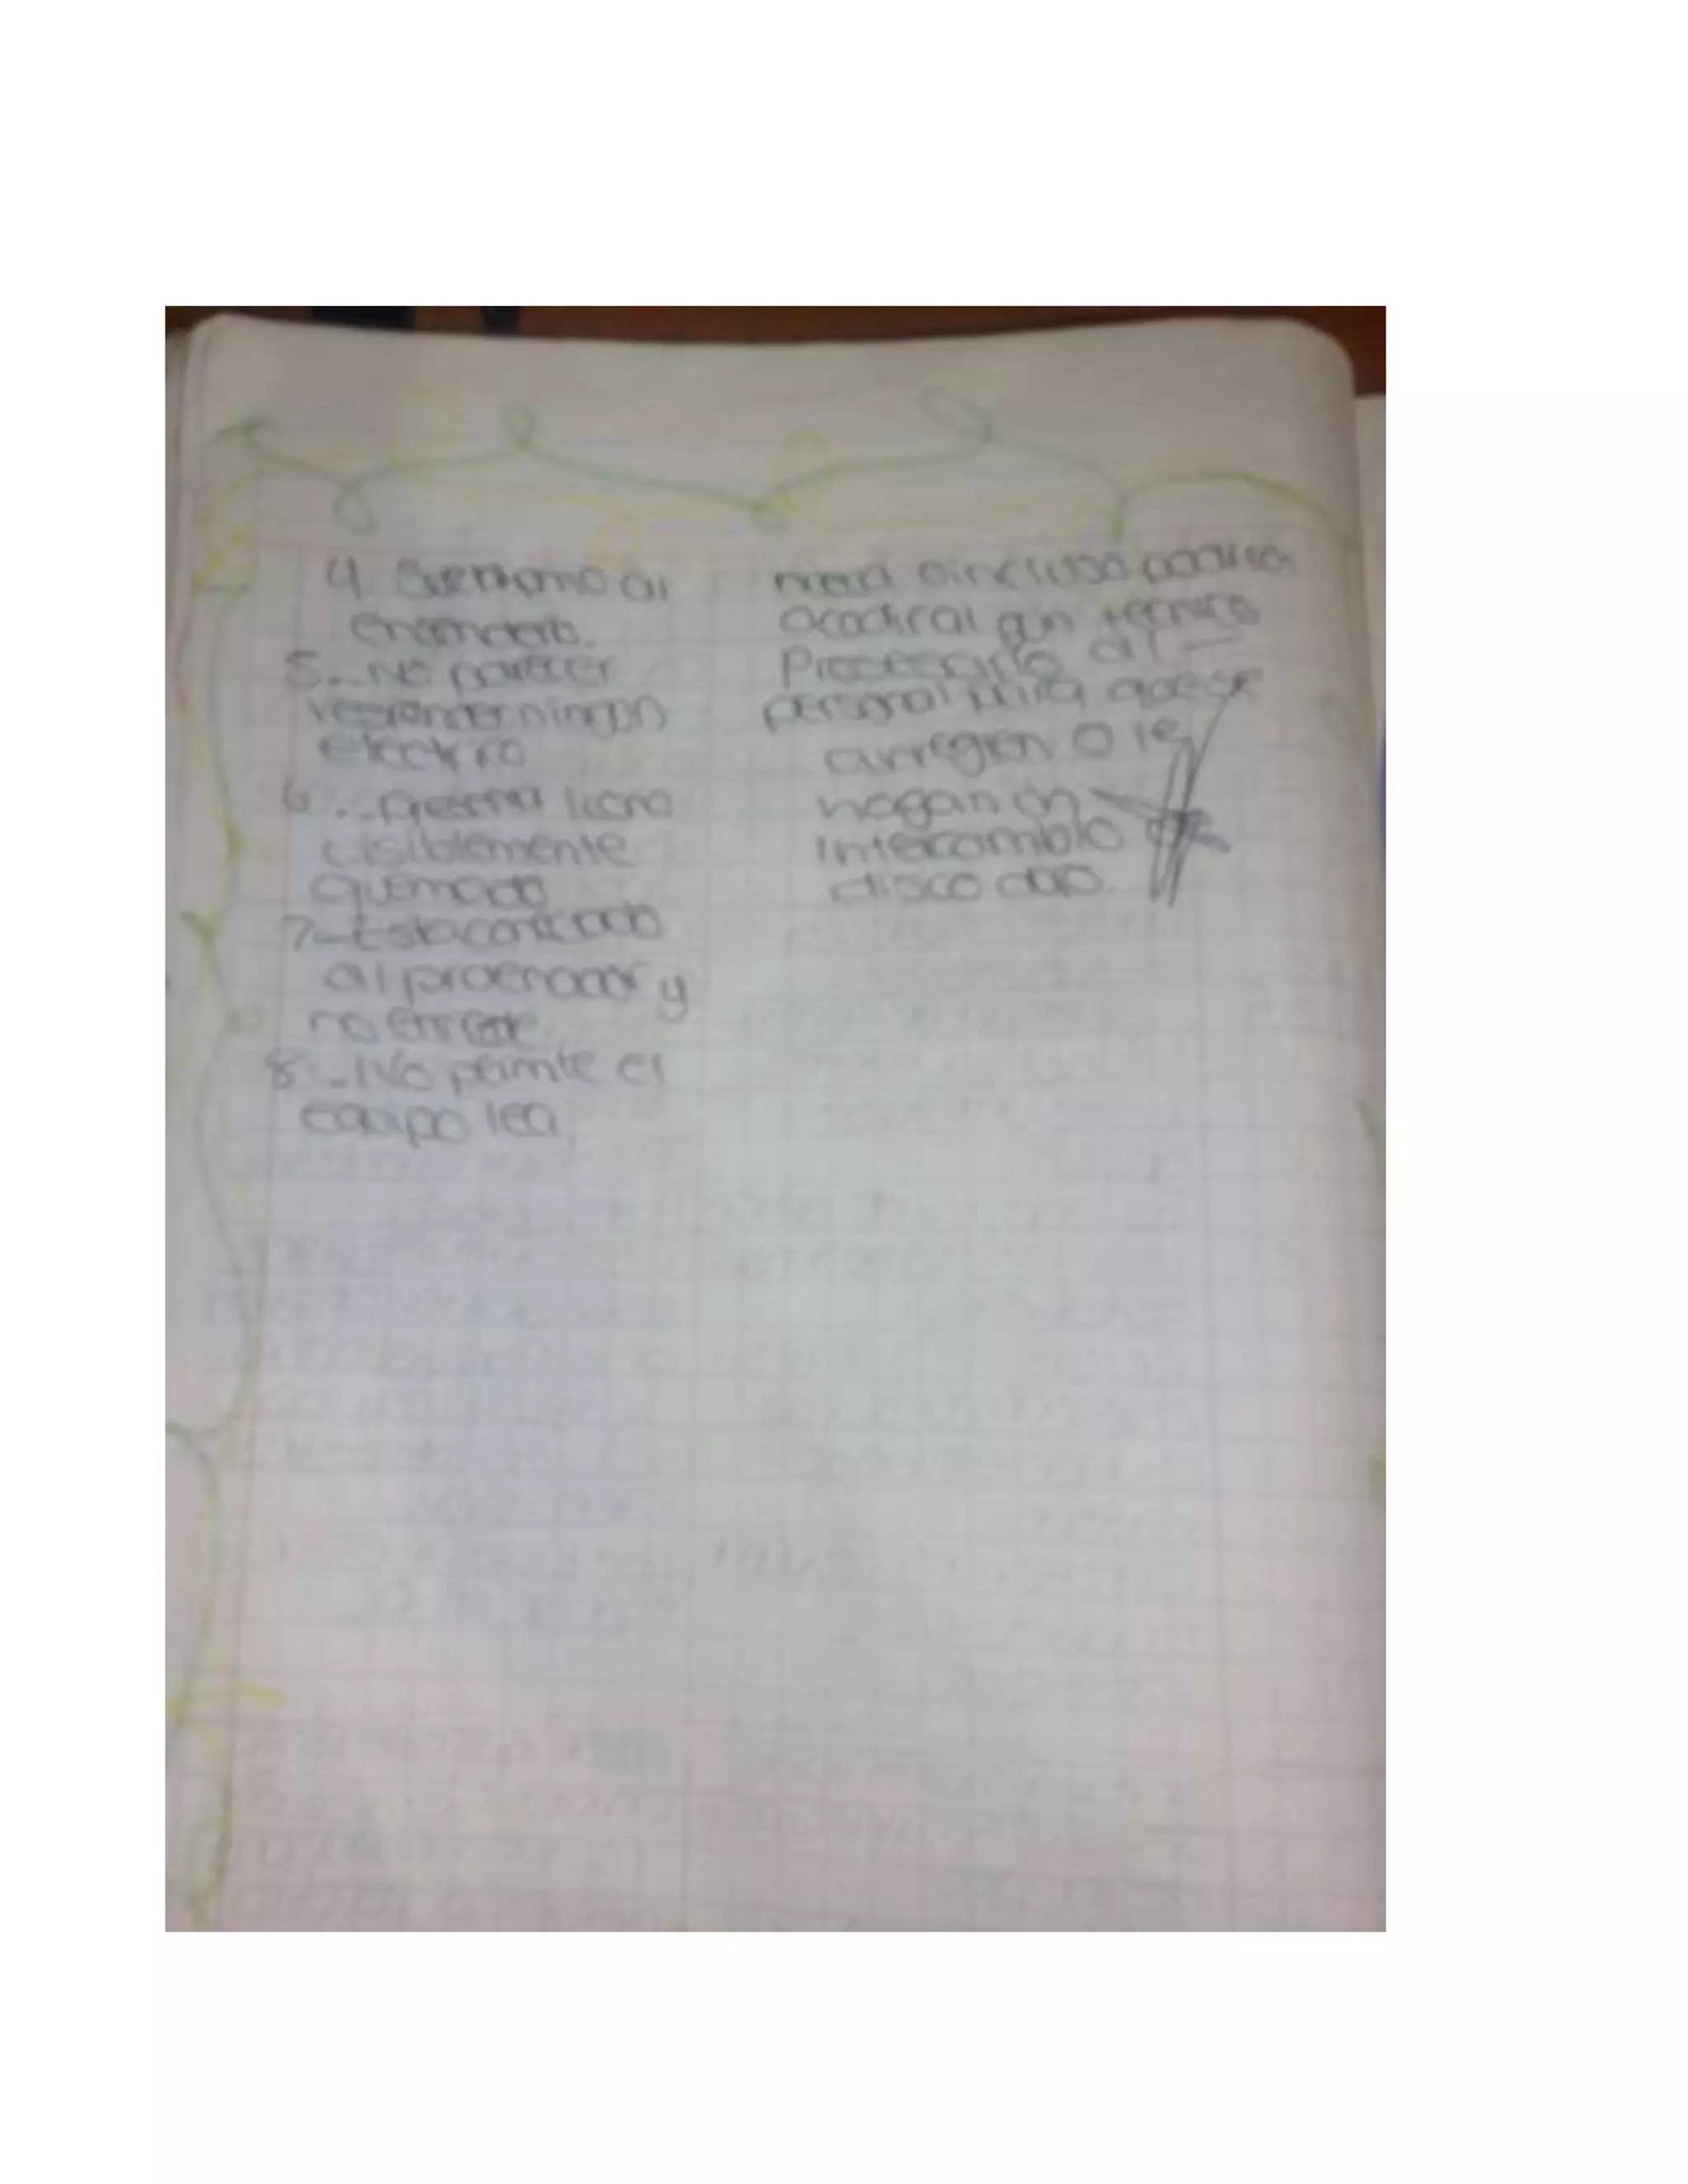 4. Suena como al
encenderlo.
5.- No parecer
responder ningun
electrico
6.- presenta icono
visiblemente
quemado
7.- Esta conectado
al proenador y
no enciende
8.- No peimite el
equipo lea.
o incluso podria
acodir al gun tecnico
al
personal para que se
arreglen o le
hagan un
intercambio
disco duro.